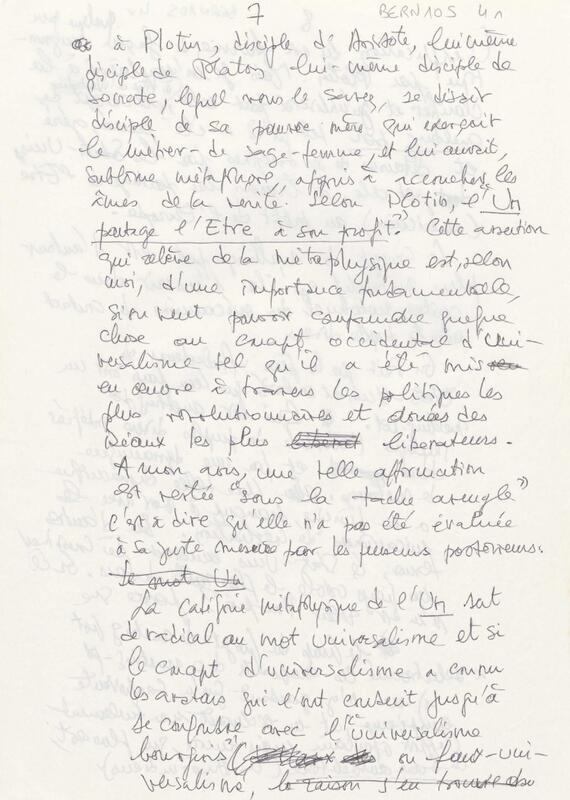 7
BERN10S 41
à Plotin, disciple d'Aristote, lui même
disciple de Platon lui-même disciple de
Socrate, lequel vous le savez, se disait
disciple de sa pauvre mère qui exerçait
le métier de sage-femme, et lui avait,
sublime métaphore, appris à accoucher les
âmes de la vérité. Selon Plotin, "l'Un
partage l'Etre à son profit." Cette assertion
qui relève de la métaphysique est, selon
moi, d'une importance fondamentale,
si on veut pouvoir comprendre quelque
chose au concept occidental d'uni-
versalisme tel qu'il a été mis
en œuvre à travers les politiques les
plus révolutionnaires et douées des
idéaux les plus libérateurs.
A mon avis, une telle affirmation
est restée "sous la tache aveugle"
c'est à dire qu'elle n'a pas été évaluée
à sa juste mesure par les penseurs postérieurs.
Le mot Un
La catégorie métaphysique de l'Un sert
de radical au mot universalisme et si
le concept d'universalisme a connu
les avatars qui l'ont conduit jusqu'à
se confondre avec l'"universalisme
bourgeois" ou faux-uni-
versalisme, la raison s'en trouve